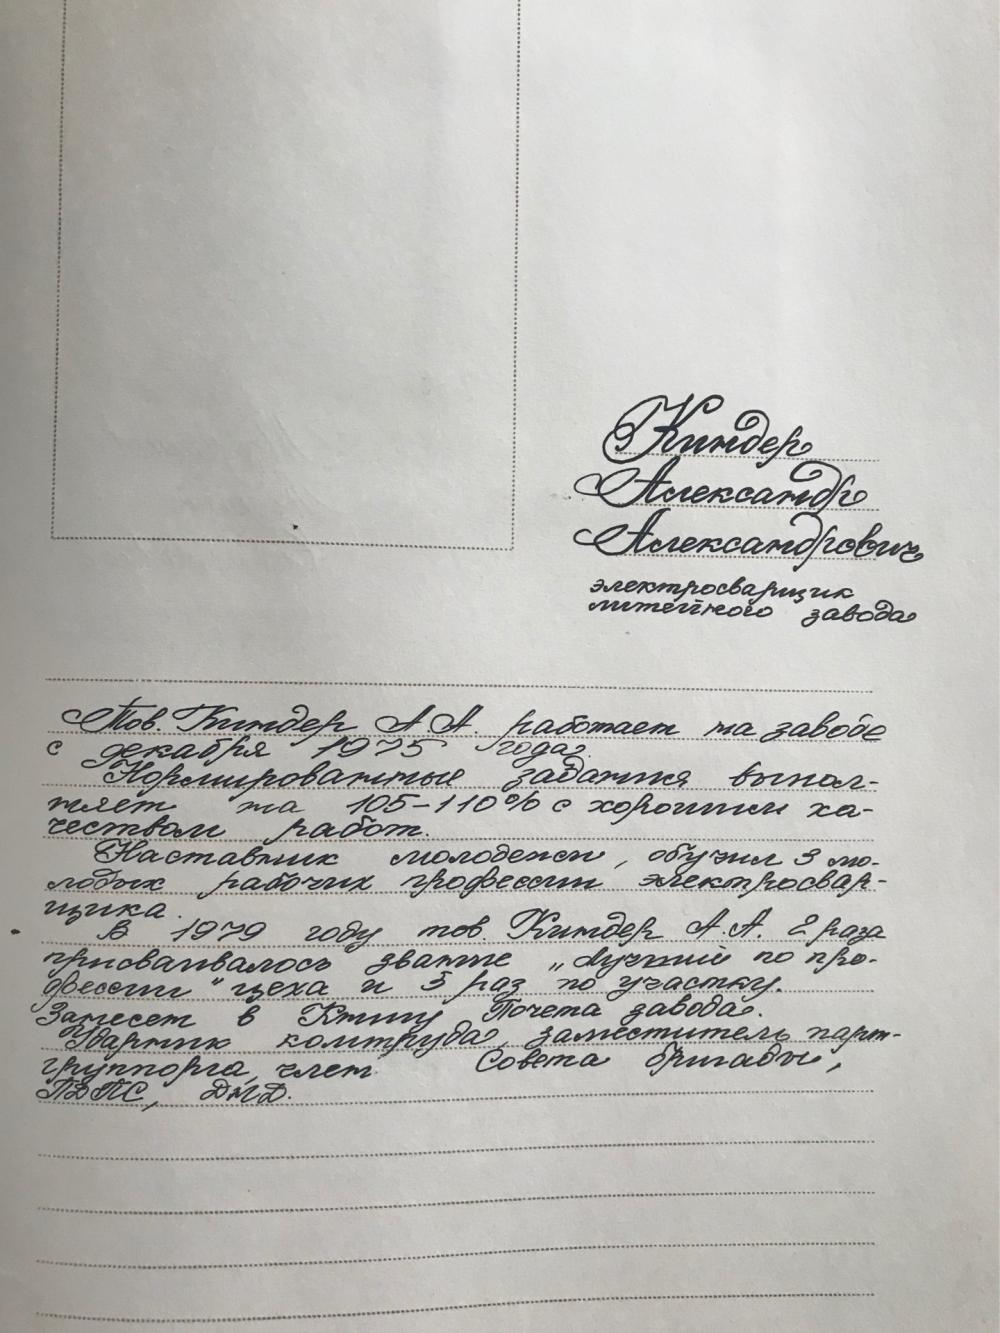 Киндер
Александр
Александрович
электросварщик
литейного завода
Тов. Киндер А.А. работает на заводе
с декабря 1975 года.
Нормированные задания выпол-
няет на 105-110% с хорошим ка-
чеством работ.
Наставник молодежи, обучил 3 мо-
лодых рабочих профессии электросвар-
щика.
В 1979 году тов. Киндер А.А. 2 раза
присваивалось звание „Лучший по про-
фессии" цеха и 3 раз по участку.
Занесен в Книгу Почета завода.
Ударник комтруда, заместитель парт-
группорга, член Совета бригады,
ПДПС, ДНД.